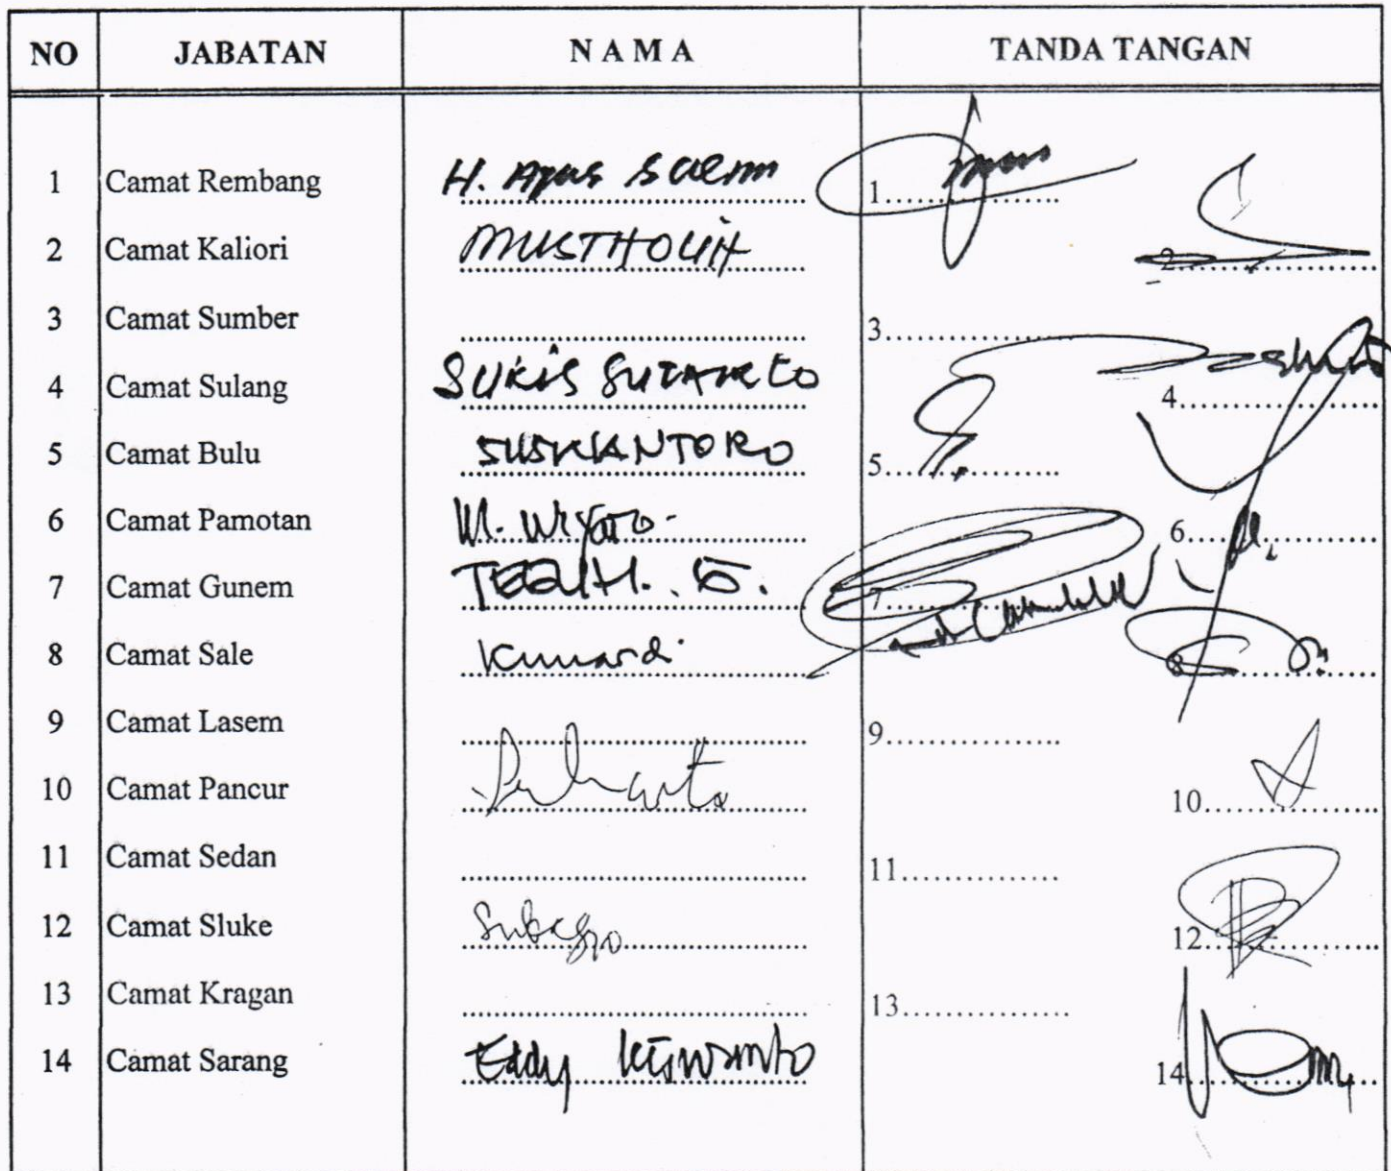 NO JABATAN N A M A TANDA TANGAN
1 Camat Rembang H. Agus Salim 1
2 Camat Kaliori MUSTHOLIH 2
3 Camat Sumber 3
4 Camat Sulang SUKIS SUTARTO 4
5 Camat Bulu SUSKIANTORO 5
6 Camat Pamotan M. Wiyoto. 6
7 Camat Gunem TEGUH. 7
8 Camat Sale Kunardi 8
9 Camat Lasem 9
10 Camat Pancur Suharto 10
11 Camat Sedan 11
12 Camat Sluke Subagyo 12
13 Camat Kragan 13
14 Camat Sarang Eddy Kiswanto 14